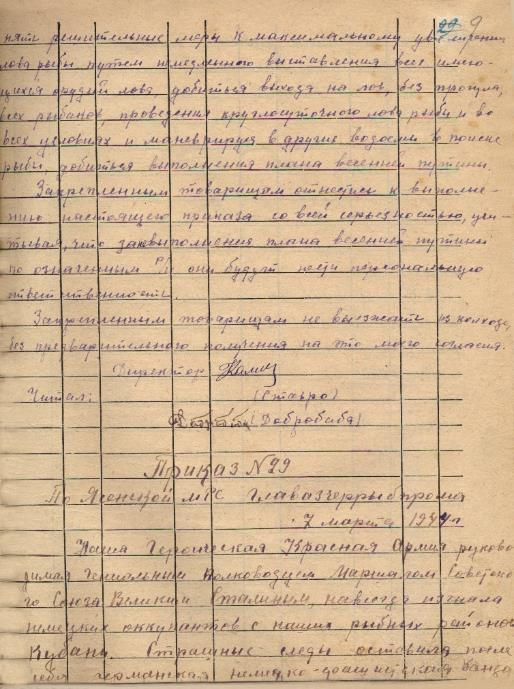 29 9
нять решительные меры к максимальному увеличению
лова рыбы путем немедленного выставления всех имею-
щихся орудий лова, добиться выхода на лов, без прогула,
всех рыбаков, проведения круглосуточного лова рыбы и во
всех условиях и маневрируя в другие водоемы в поиске
рыбы добиться выполнения плана весенней путины.
Закрепленным товарищам отнестись к выполне-
нию настоящего приказа со всей серьезностью, учи-
тывая, что за выполнения плана весенней путины
по означенным р/к они будут нести персональную
ответственность.
Закрепленным товарищам не выезжать из колхоза,
без предварительного получения на это моего согласия.
Директор
Читал: (Ставро)
(Добробаба)
Приказ №29
По Ясенской МРС Главазчеррыбпрома
7 марта 1944 г
Наша Героическая Красная Армия руково
димая Гениальным Полководцем Маршалом Советско
го Союза Великим Сталиным, навсегда изгнала
немецких оккупантов с наших рыбных районов
Кубани. Страшные следы оставила после
себя германская немецко-фашистская банда